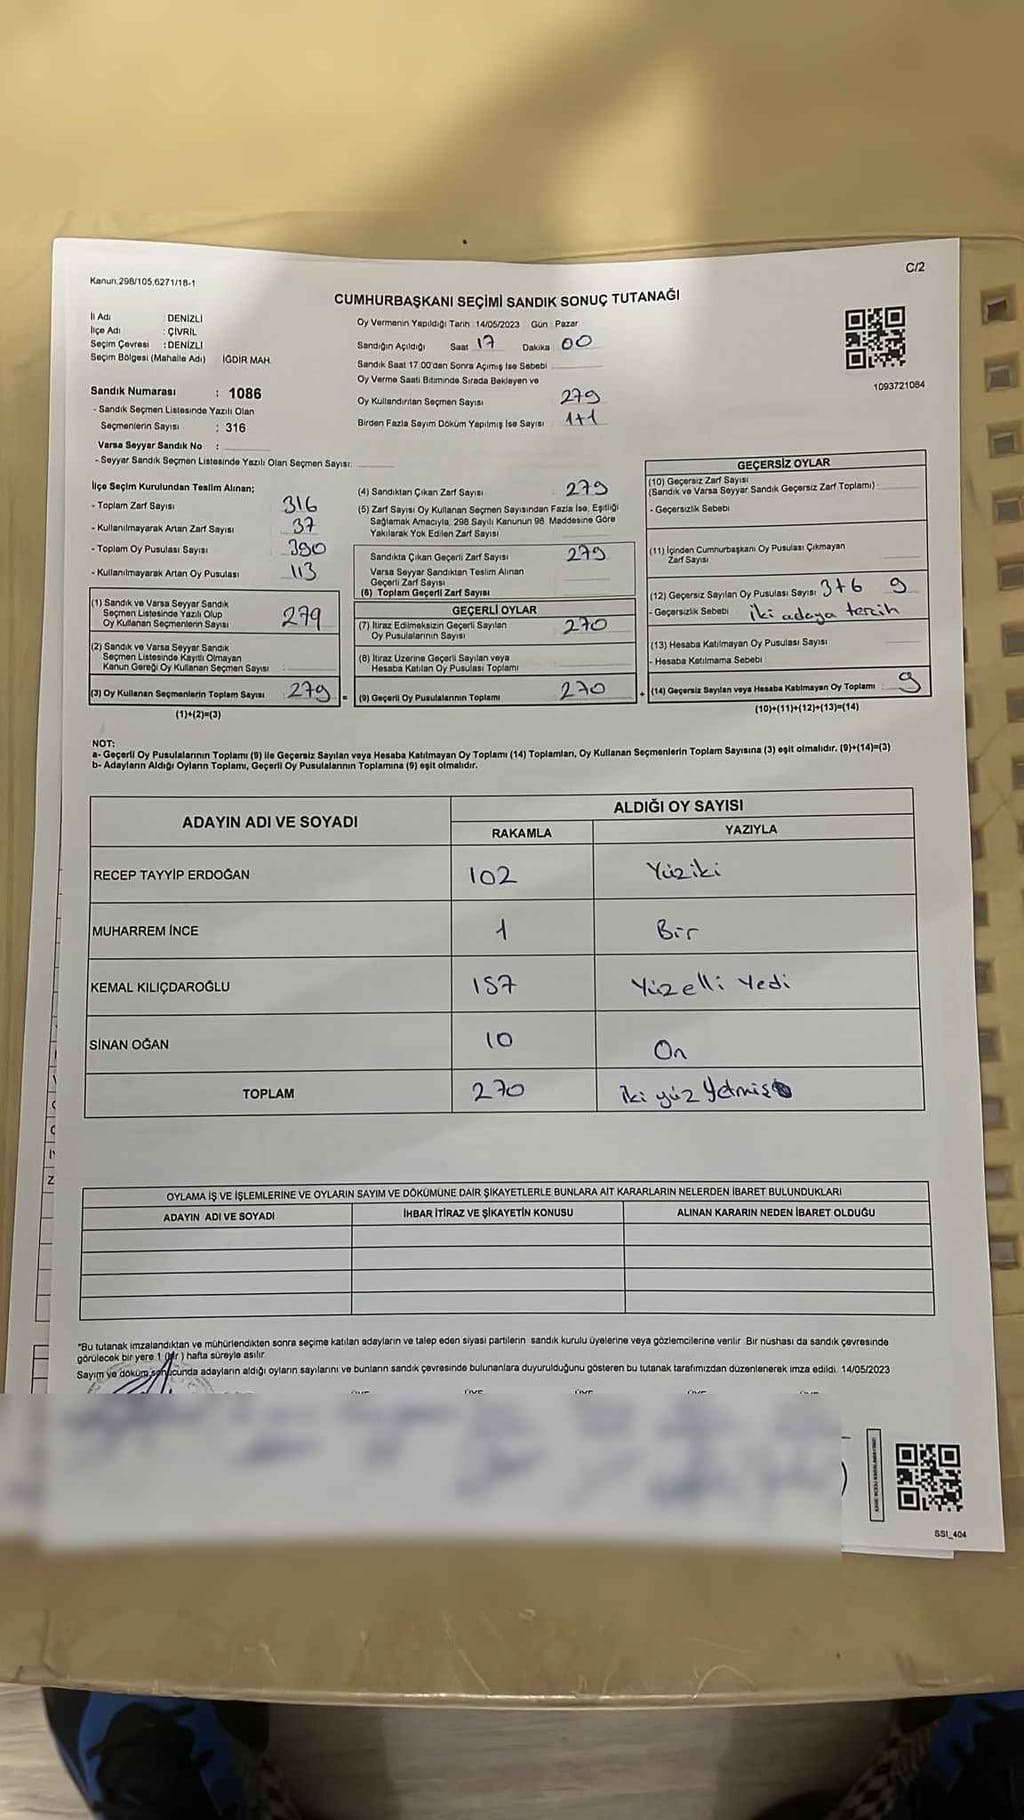 Kanun.298/105,6271/18-1
C/2
CUMHURBAŞKANI SEÇİMİ SANDIK SONUÇ TUTANAĞI
İl Adı : DENİZLİ
İlçe Adı : ÇİVRİL
Seçim Çevresi : DENİZLİ
Seçim Bölgesi (Mahalle Adı) IĞDIR MAH.
Sandık Numarası : 1086
- Sandık Seçmen Listesinde Yazılı Olan
Seçmenlerin Sayısı : 316
Varsa Seyyar Sandık No :
- Seyyar Sandık Seçmen Listesinde Yazılı Olan Seçmen Sayısı:
Oy Vermenin Yapıldığı Tarih : 14/05/2023 Gün : Pazar
Sandığın Açıldığı Saat 17 Dakika 00
Sandık Saat 17.00'den Sonra Açımış İse Sebebi
Oy Verme Saati Bitiminde Sırada Bekleyen ve
Oy Kullandırılan Seçmen Sayısı 279
Birden Fazla Sayım Döküm Yapılmış İse Sayısı 1+1
1093721084
İlçe Seçim Kurulundan Teslim Alınan;
- Toplam Zarf Sayısı 316
- Kullanılmayarak Artan Zarf Sayısı 37
- Toplam Oy Pusulası Sayısı 390
- Kullanılmayarak Artan Oy Pusulası 113
(1) Sandık ve Varsa Seyyar Sandık
Seçmen Listesinde Yazılı Olup
Oy Kullanan Seçmenlerin Sayısı 279
(2) Sandık ve Varsa Seyyar Sandık
Seçmen Listesinde Kayıtlı Olmayan
Kanun Gereği Oy Kullanan Seçmen Sayısı
(3) Oy Kullanan Seçmenlerin Toplam Sayısı 279 =
(1)+(2)=(3)
(4) Sandıktan Çıkan Zarf Sayısı 279
(5) Zarf Sayısı Oy Kullanan Seçmen Sayısından Fazla İse, Eşitliği
Sağlamak Amacıyla, 298 Sayılı Kanunun 98. Maddesine Göre
Yakılarak Yok Edilen Zarf Sayısı
Sandıkta Çıkan Geçerli Zarf Sayısı 279
Varsa Seyyar Sandıktan Teslim Alınan
Geçerli Zarf Sayısı
(6) Toplam Geçerli Zarf Sayısı
GEÇERLİ OYLAR
(7) İtiraz Edilmeksizin Geçerli Sayılan
Oy Pusulalarının Sayısı 270
(8) İtiraz Üzerine Geçerli Sayılan veya
Hesaba Katılan Oy Pusulası Toplamı
(9) Geçerli Oy Pusulalarının Toplamı 270 +
GEÇERSİZ OYLAR
(10) Geçersiz Zarf Sayısı
(Sandık ve Varsa Seyyar Sandık Geçersiz Zarf Toplamı) :
- Geçersizlik Sebebi
(11) İçinden Cumhurbaşkanı Oy Pusulası Çıkmayan
Zarf Sayısı
(12) Geçersiz Sayılan Oy Pusulası Sayısı 3+6 9
- Geçersizlik Sebebi iki adaya tercih
(13) Hesaba Katılmayan Oy Pusulası Sayısı
- Hesaba Katılmama Sebebi
(14) Geçersiz Sayılan veya Hesaba Katılmayan Oy Toplamı 9
(10)+(11)+(12)+(13)=(14)
NOT:
a- Geçerli Oy Pusulalarının Toplamı (9) ile Geçersiz Sayılan veya Hesaba Katılmayan Oy Toplamı (14) Toplamları, Oy Kullanan Seçmenlerin Toplam Sayısına (3) eşit olmalıdır. (9)+(14)=(3)
b- Adayların Aldığı Oyların Toplamı, Geçerli Oy Pusulalarının Toplamına (9) eşit olmalıdır.
ADAYIN ADI VE SOYADI ALDIĞI OY SAYISI
RAKAMLA YAZIYLA
RECEP TAYYİP ERDOĞAN 102 Yüziki
MUHARREM İNCE 1 Bir
KEMAL KILIÇDAROĞLU 157 Yüzelli Yedi
SİNAN OĞAN 10 On
TOPLAM 270 İki yüz Yetmiş
OYLAMA İŞ VE İŞLEMLERİNE VE OYLARIN SAYIM VE DÖKÜMÜNE DAİR ŞİKAYETLERLE BUNLARA AİT KARARLARIN NELERDEN İBARET BULUNDUKLARI
ADAYIN ADI VE SOYADI İHBAR İTİRAZ VE ŞİKAYETİN KONUSU ALINAN KARARIN NEDEN İBARET OLDUĞU
*Bu tutanak imzalandıktan ve mühürlendikten sonra seçime katılan adayların ve talep eden siyasi partilerin sandık kurulu üyelerine veya gözlemcilerine verilir. Bir nüshası da sandık çevresinde
görülecek bir yere 1 (bir) hafta süreyle asılır.
Sayım ve döküm sonucunda adayların aldığı oyların sayılarını ve bunların sandık çevresinde bulunanlara duyurulduğunu gösteren bu tutanak tarafımızdan düzenlenerek imza edildi. 14/05/2023
SSI_404